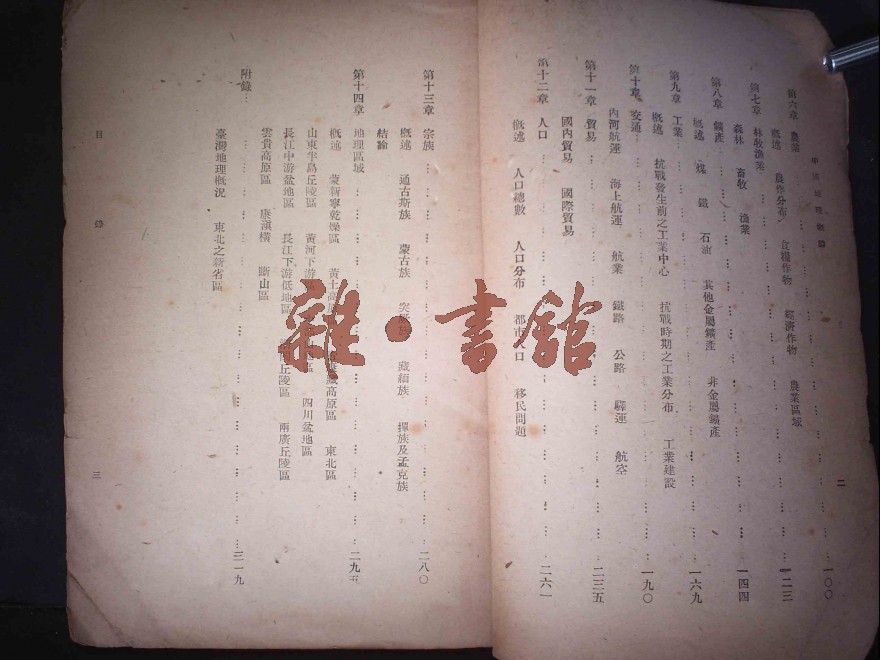 中國地理概論
二
第六章 農業 一〇〇
概述 農作分布 食糧作物 經濟作物 農業區域
第七章 林牧漁業 一二三
森林 畜牧 漁業
第八章 鑛產 一四四
概述 煤 鐵 石油 其他金屬鑛產 非金屬鑛產
第九章 工業 一六九
概述 抗戰發生前之工業中心 抗戰時期之工業分布 工業建設
第十章 交通 一九〇
內河航運 海上航運 航業 鐵路 公路 驛運 航空
第十一章 貿易 二三五
國內貿易 國際貿易
第十二章 人口 二六一
概述 人口總數 人口分布 都市人口 移民問題
第十三章 宗族 二八〇
概述 通古斯族 蒙古族 突厥族 藏緬族 撣族及孟克族
結論
第十四章 地理區域 二九五
概述 蒙新寧乾燥區 黃土高原 高原區 東北區
山東半島丘陵區 黃河下游 區 四川盆地區
長江中游盆地區 長江下游低地區 丘陵區 兩廣丘陵區
雲貴高原區 康滇橫斷山區
附錄 三一九
臺灣地理概況 東北之新省區
目錄
三
雜·書館